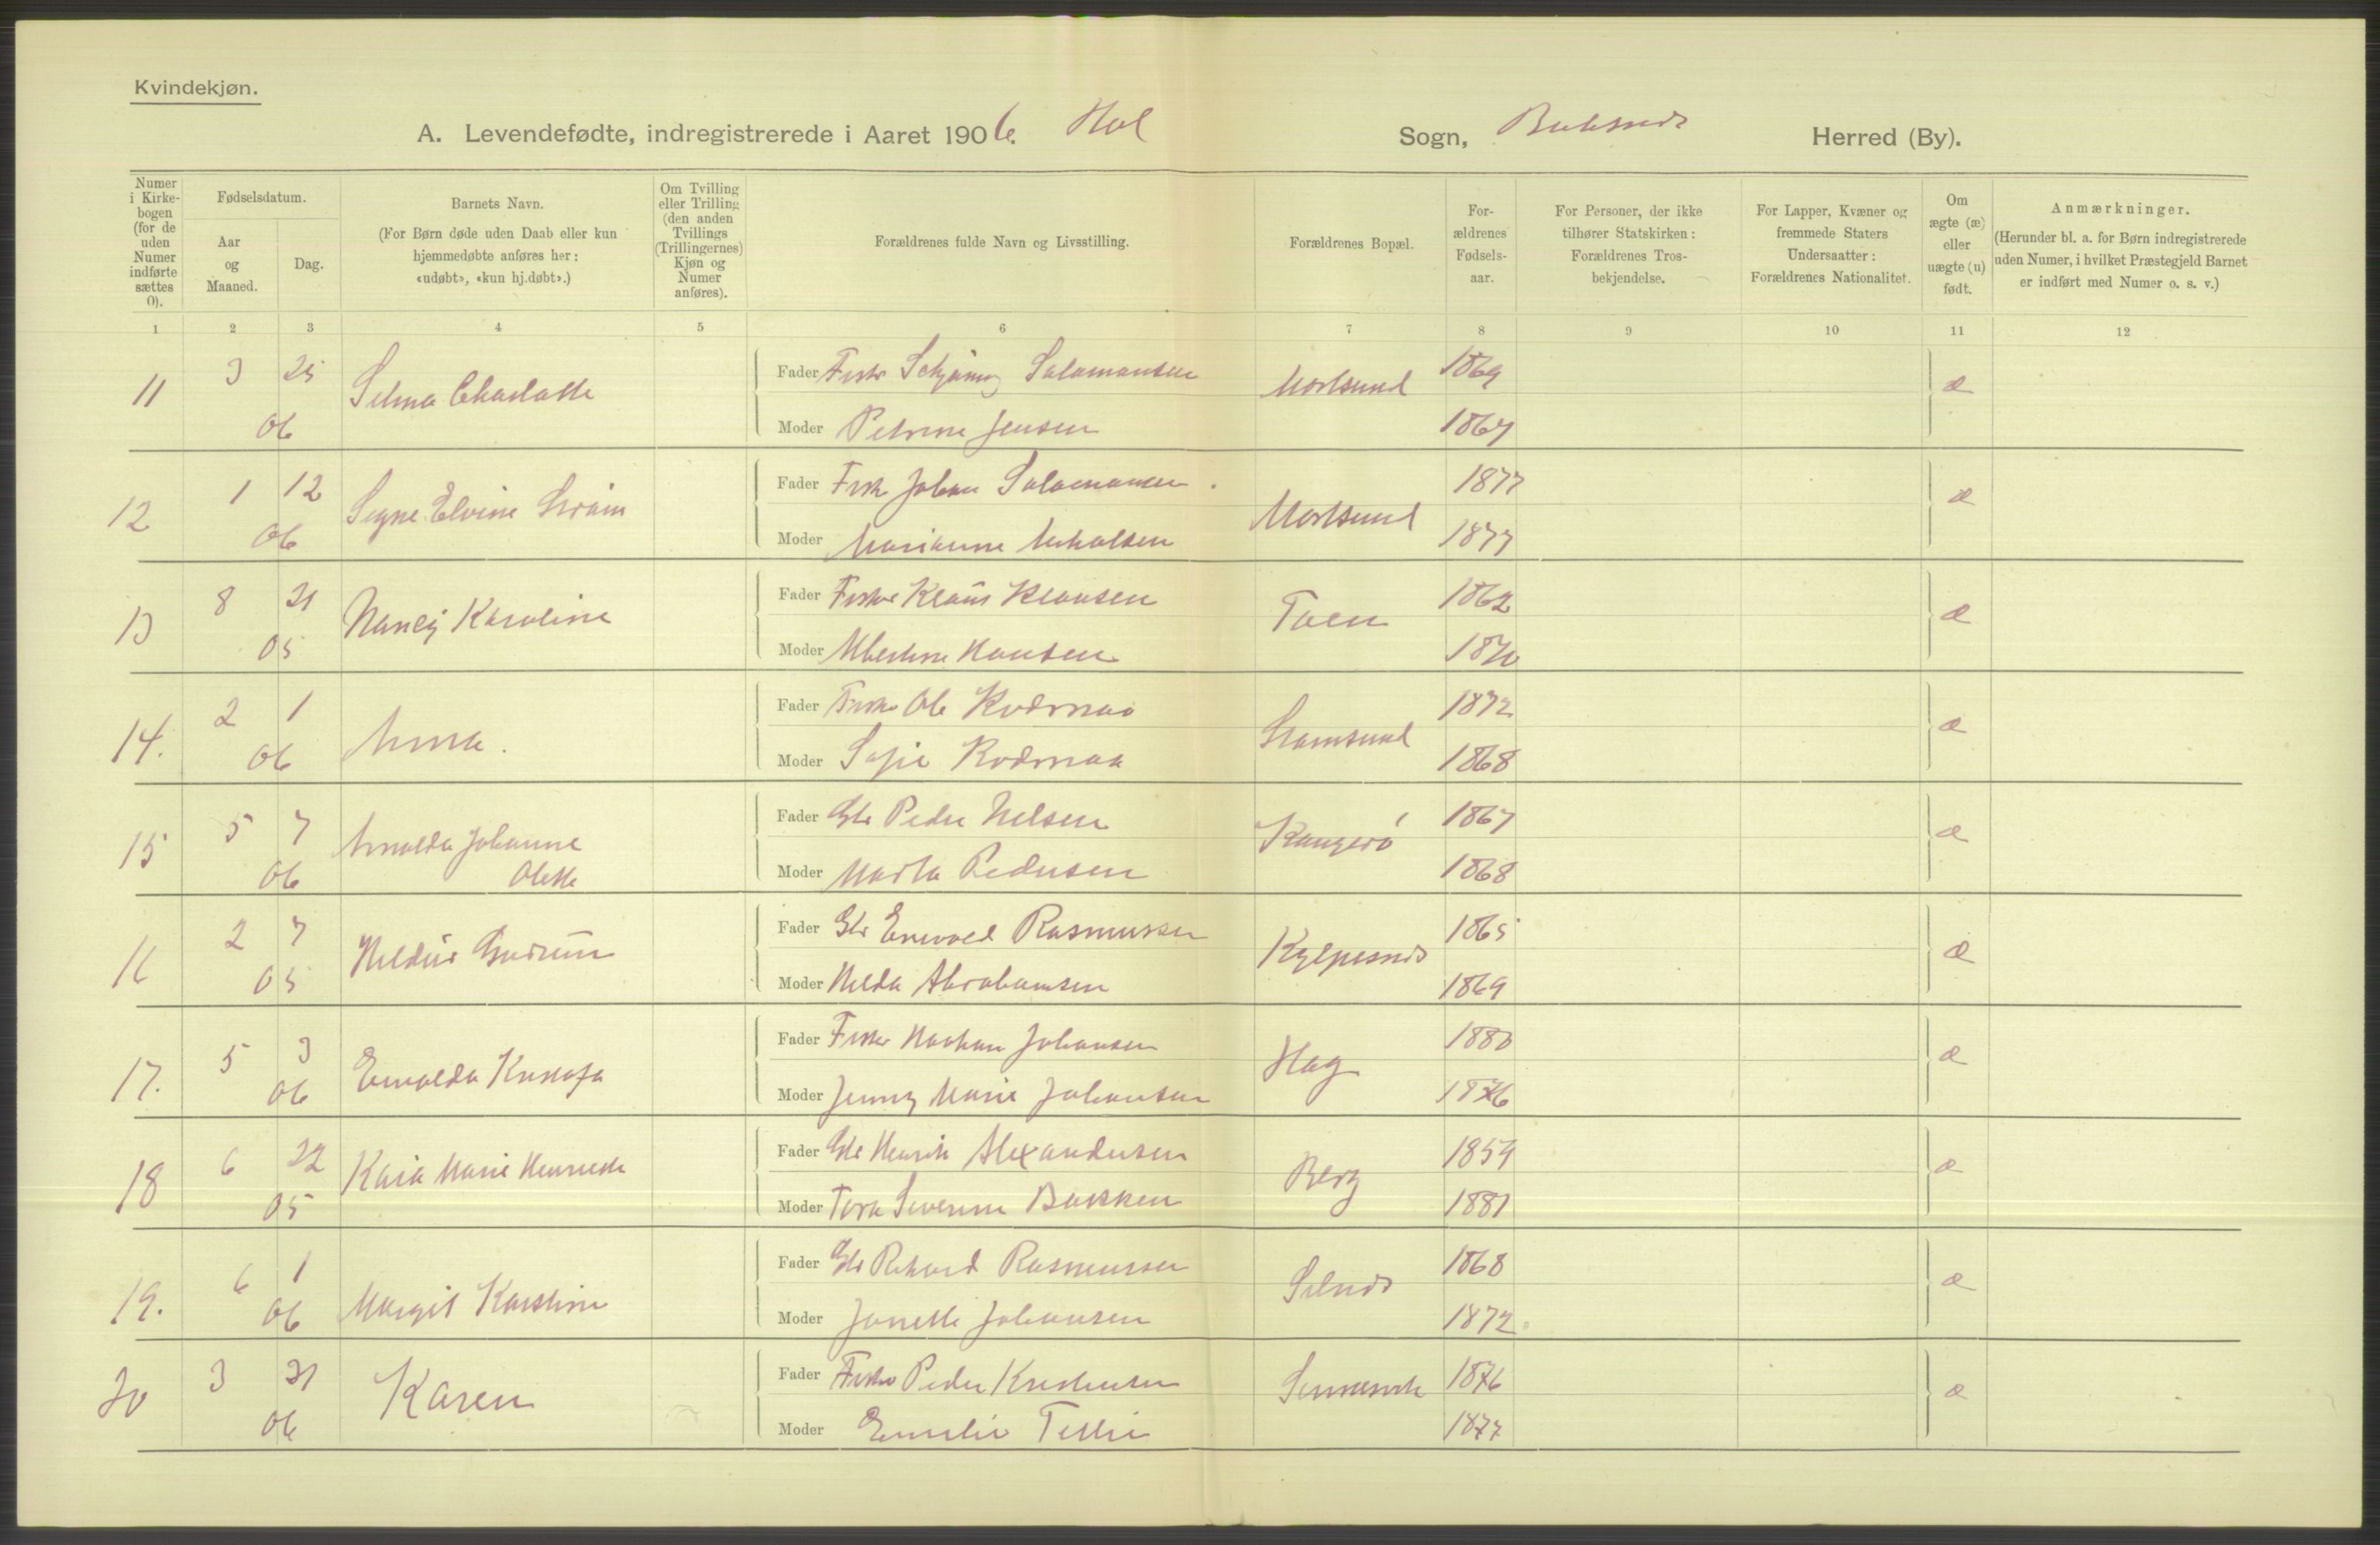 Kvindekjøn.
A. Levendefødte, indregistrerede i Aaret 1906. Hol Sogn, Buksnes Herred (By).
Numer i Kirkebogen (for de uden Numer indførte sættes 0).
Fødselsdatum.
Aar og Maaned.
Dag.
Barnets Navn.
(For Børn døde uden Daab eller kun hjemmedøbte anføres her: «udøbt», «kun hj.døbt».)
Om Tvilling eller Trilling (den anden Tvillings (Trillingernes) Kjøn og Numer anføres).
Forældrenes fulde Navn og Livsstilling.
Forældrenes Bopæl.
Forældrenes Fødselsaar.
For Personer, der ikke tilhører Statskirken: Forældrenes Trosbekjendelse.
For Lapper, Kvæner og fremmede Staters Undersaatter: Forældrenes Nationalitet.
Om ægte (æ) eller uægte (u) født.
Anmærkninger.
(Herunder bl. a. for Børn indregistrerede uden Numer, i hvilket Præstegjeld Barnet er indført med Numer o. s. v.)
1 2 3 4 5 6 7 8 9 10 11 12
11 3 25 Selma Charlotte Fader Fisker Salamonsen Mortsund 1869 æ
06 Moder Petrine Jensen 1867
12 1 12 Signe Elvine Fader Fisk Johan Salamonsen Mortsund 1877 æ
06 Moder Marianne 1877
13 8 31 Nancy Karoline Fader Fisker Klaus Klausen Toen 1862 æ
05 Moder Albertine Hansen 1870
14. 2 1 Anna. Fader Fisker Ole Stamsund 1872 æ
06 Moder Sofie 1868
15 5 7 Arnolda Johanne Fader Gbr Peder Nilsen 1867 æ
06 Olette Moder Marta Pedersen 1868
16 2 7 Hildur Gudrun Fader Gbr Enevold Rasmussen 1865 æ
05 Moder Hilda Abrahamsen 1869
17. 5 3 Fader Fisker Haakan Johansen Hag 1880 æ
06 Moder Jenny Marie Johansen 1876
18 6 22 Kaia Marie Fader Gbr Henrik Alexandersen Berg 1859 æ
05 Moder Tora Severine Bakken 1881
19. 6 1 Margit Karstine Fader Gbr Rikard Rasmussen 1868 æ
06 Moder Janette Johansen 1872
20 3 31 Karen Fader Fisker Peder Kristensen 1876 æ
06 Moder Emilie 1877